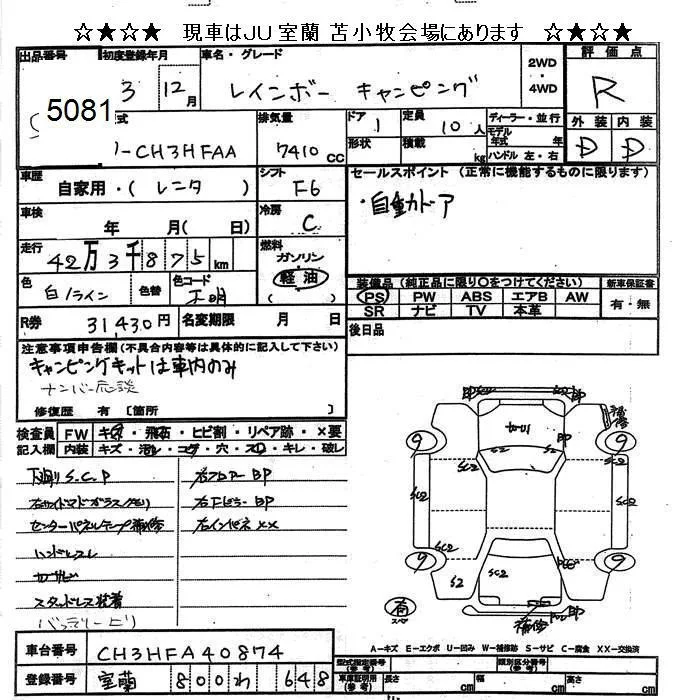 ☆★☆★ 現車はJU室蘭 苫小牧会場にあります ☆★☆★
出品番号 初度登録年月 車名・グレード 2WD・4WD 評価点
5081 3 12月 レインボー キャンピング R
式 排気量 ドア 定員 ディーラー・並行 外装 内装
-CH3HFAA 7410cc 1 10人 形状 積載 kg モデル年式 年式 ハンドル 左・右 D D
車歴 自家用・(レンタ) シフト F6 セールスポイント (正常に機能するものに限ります)
車検 年 月(日) 冷房 C ・自動ドア
走行 42万3千875km 燃料 ガソリン 軽油 ( )
色 白/ライン 色替 色コード 不明
装備品 (純正品に限り○をつけてください) 新車保証書
PS PW ABS エアB AW 有・無
SR ナビ TV 本革
R券 31430円 名変期限 月 日 後日品
注意事項申告欄(不具合内容等は具体的に記入して下さい)
キャンピングキットは車内のみ
ナンバー応談
修復歴 有 〔箇所 〕
検査員 FW キズ・飛石・ヒビ割・リペア跡・×要
記入欄 内装 キズ・汚レ・コゲ・穴・スレ・キレ・破レ
下廻りS.C.P 右フロアーBP
右サイドマドガラスクモリ 右FピラーBP
センターパネルテープ補修 右インパネ××
ハンドルスレ
スタッドレス装着
バッテリー上リ
補修
BP BP
カガリ
9 9
SC2 SC2 S2
SC2 SC2
SC2
9 9
S2 SC2
BP
有 スペア 補修
A-キズ E-エクボ U-凹み W-補修跡 S-サビ C-腐食 XX-交換済
車台番号 CH3HFA40874
登録番号 室蘭 800わ648
型式指定番号(参考) 類別区分番号(参考)
車庫証明用(参考) 長さ cm 幅 cm 高さ cm